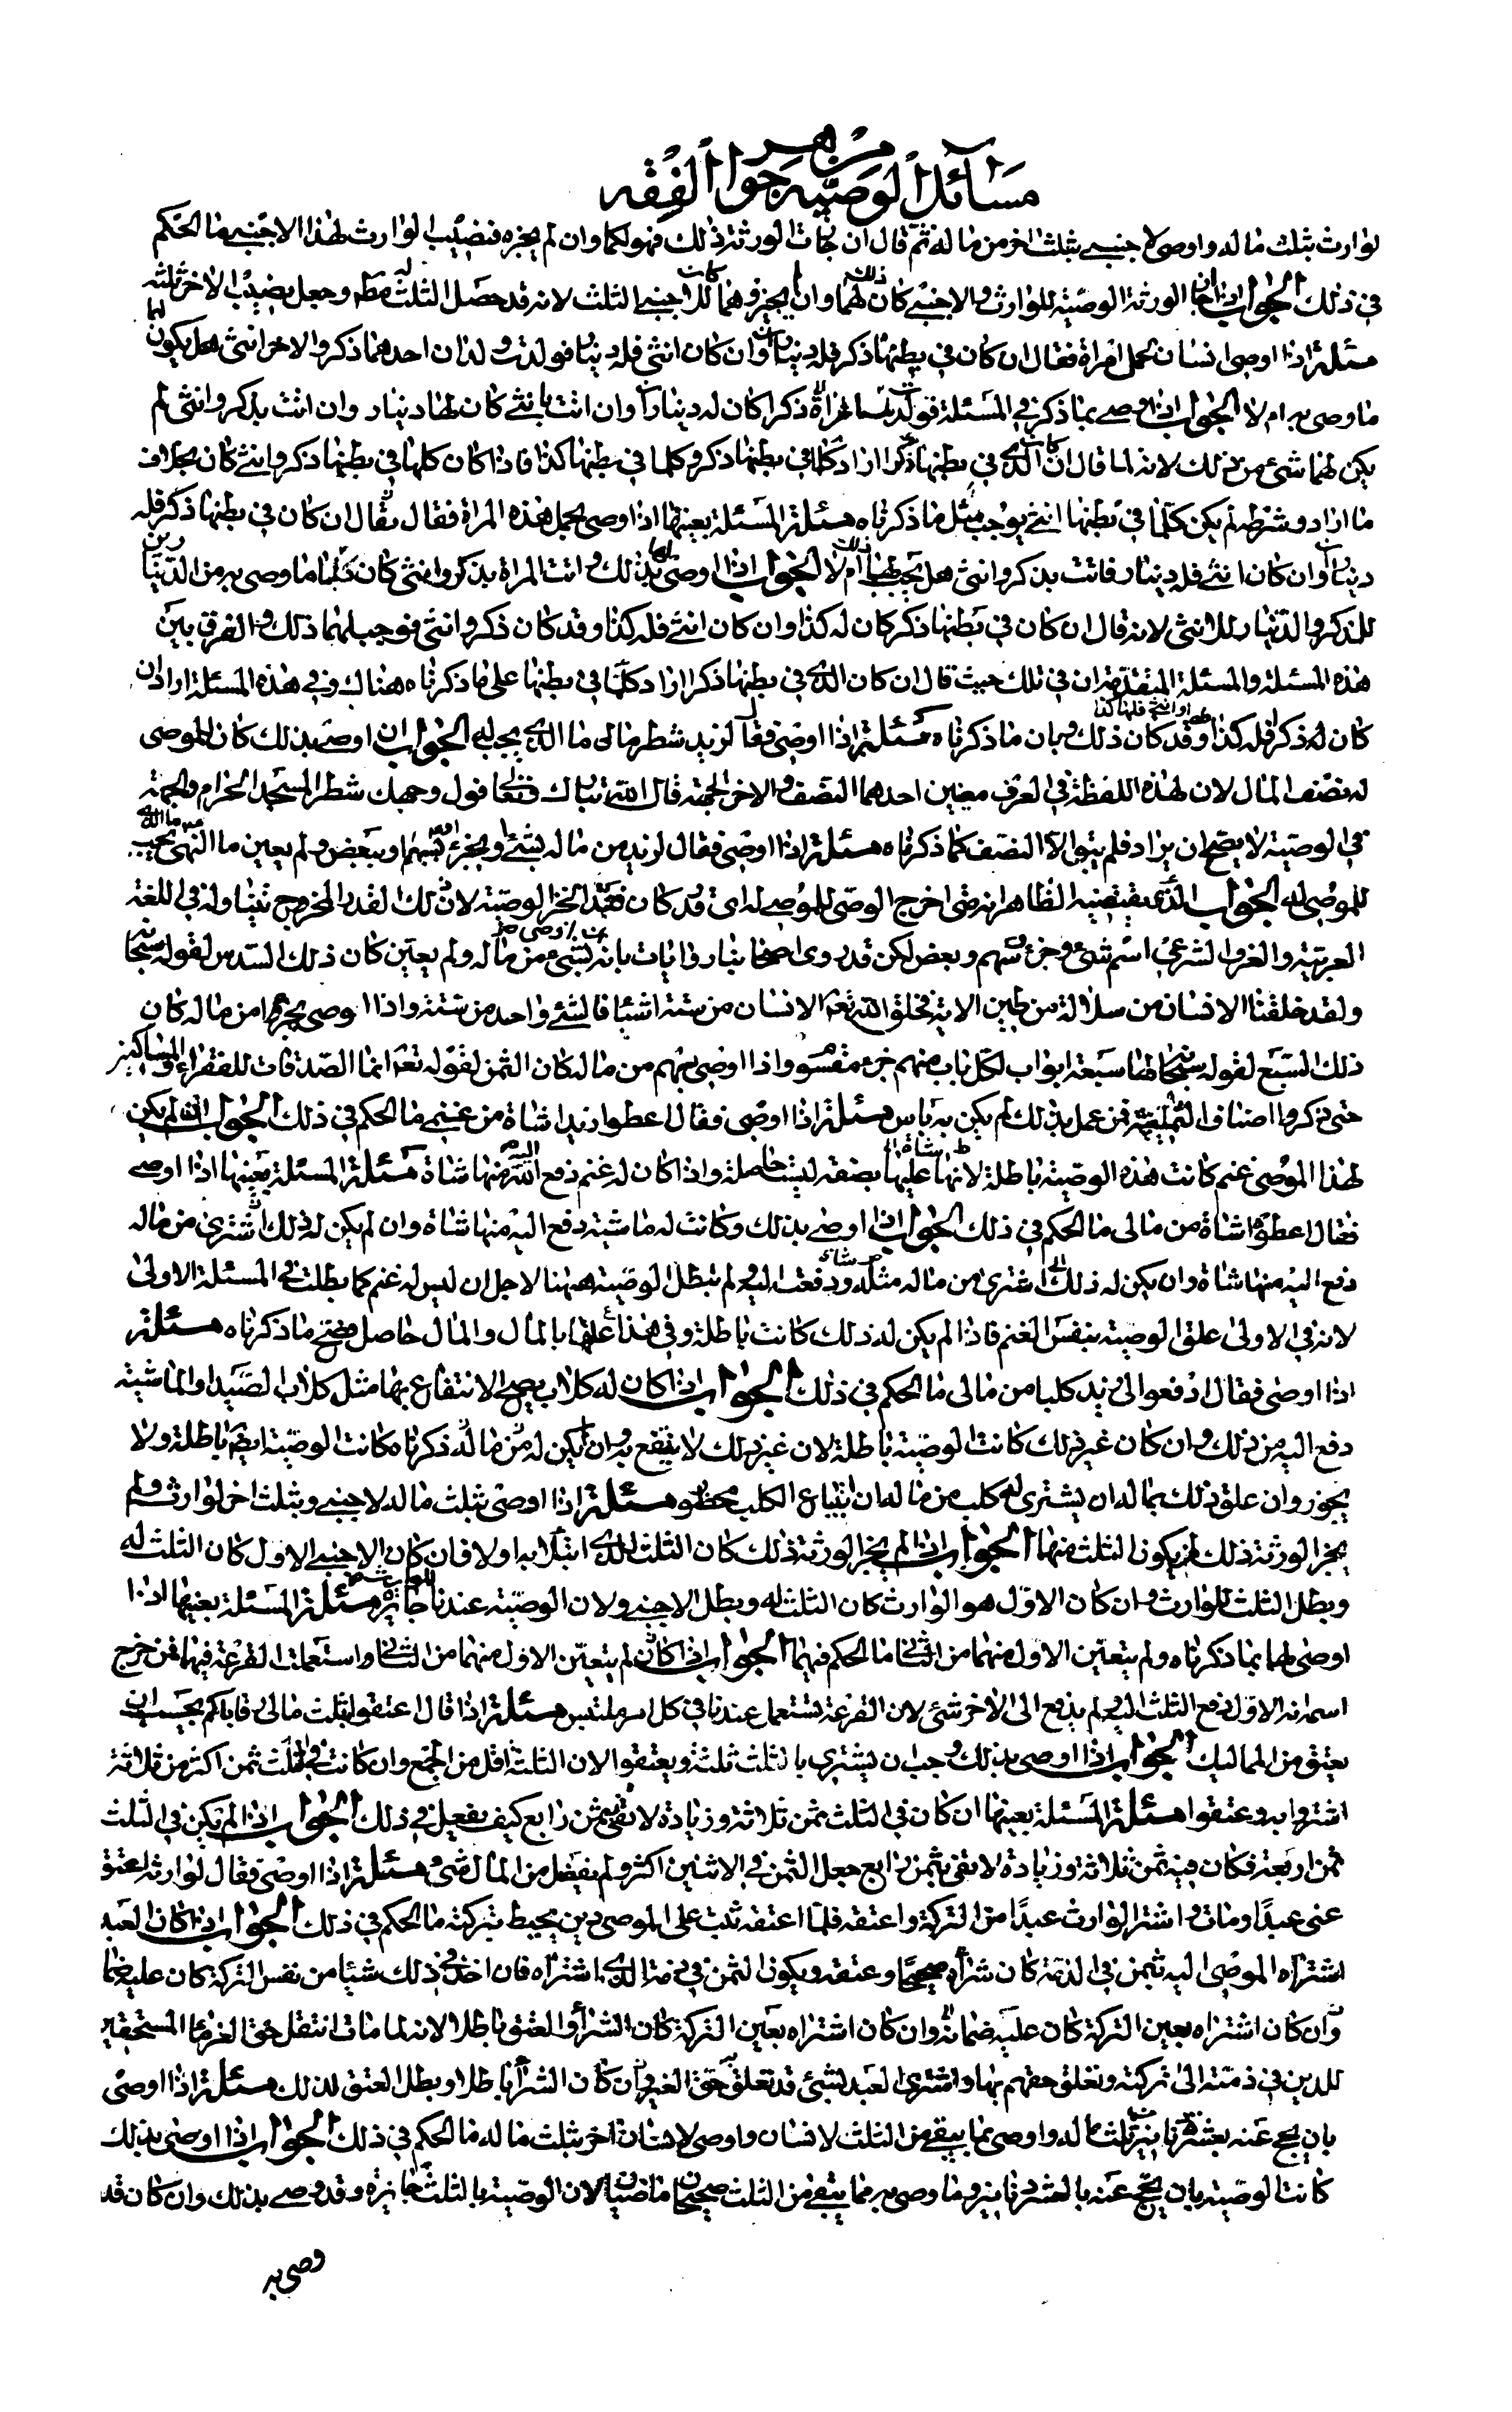 مسائل الوصية من جواهر الفقه
لوارث بثلث ماله واوصى لاجنبي بثلث اخر من ماله ثم قال ان اجازت الورثة ذلك فهو لكما وان لم يجزه فنصيب الوارث لهذا الاجنبي ما الحكم
في ذلك الجواب اذا اجاز الورثة الوصية للوارث والاجنبي كان ذلك لهما وان لم يجيزوهما كان للاجنبي الثلث لانه قد حصل الثلث له وجعل نصيب الاخر ثلثه
مسئلة اذا اوصى انسان لحمل امراة فقال ان كان في بطنها ذكر فله ديناران وان كان انثى فله دينار فولدت ولدان احدهما ذكر والاخر انثى هل يكون لهما
ما وصى به ام لا الجواب اذا وصى بما ذكر في المسئلة فولدت المراة ذكرا كان له ديناران وان اتت بانثى كان لها دينار وان اتت بذكر وانثى لم
يكن لهما شيء من ذلك لانه لما قال ان كان الذي في بطنها ذكرا اراد كلما في بطنها ذكر وكلما في بطنها كذا فاذا كان كلها في بطنها ذكر وانثى كان بخلاف
ما اراد وشرطه لم يكن كلما في بطنها انثى يوجب مثل ما ذكرناه مسئلة المسئلة بعينها اذا اوصى لحمل هذه المراة فقال ان كان في بطنها ذكر فله
ديناران وان كان انثى فله دينار فاتت بذكر وانثى هل يجب لهما ذلك ام لا الجواب اذا اوصى لها بذلك واتت المراة بذكر وانثى كان كلما ما وصى به من الدينارين
للذكر والدينار للانثى لانه قال ان كان في بطنها ذكر كان له كذا وان كان انثى فله كذا وقد كان ذكر وانثى فوجب لهما ذلك والفرق بين
هذه المسئلة والمسئلة المتقدمة ان في تلك حيث قال ان كان الذي في بطنها ذكرا اراد كلما في بطنها على ما ذكرناه هناك وفي هذه المسئلة اراد ان
كان له ذكر فله كذا او انثى فلها كذا وقد كان ذلك وبان ما ذكرناه مسئلة اذا اوصى فقال لزيد شطر مالي ما الذي يجب له الجواب ان اوصى بذلك كان للموصى
له نصف المال لان لهذه اللفظة في العرف معنيين احدهما النصف والاخر الجهة قال الله تبارك وتعالى فول وجهك شطر المسجد الحرام والجهة
في الوصية لا يصح ان يراد فلم يبق الا النصف كما ذكرناه مسئلة اذا اوصى فقال لزيد من ماله بشئ او بجزء او بسهم او ببعض ولم يعين ما الذي يجب
للموصى له الجواب الذي يقتضيه الظاهر انه متى اخرج الوصي للموصى له اي قدر كان فقد انجز الوصية لان ذلك القدر المخرج يتناوله في اللغة
العربية والعرف الشرعي اسم شئ وجزء وسهم وبعض لكن قد روى اصحابنا روايات بانه ان اوصى بشئ من ماله ولم يعين كان ذلك السدس لقوله سبحانه
ولقد خلقنا الانسان من سلالة من طين الاية فخلق الله تعالى الانسان من ستة اشياء فالشئ واحد من ستة واذا اوصى بجزء من ماله كان
ذلك السبع لقوله سبحانه لها سبعة ابواب لكل باب منهم جزء مقسوم واذا اوصى بسهم من ماله كان الثمن لقوله تعالى انما الصدقات للفقراء والمساكين
حتى ذكر اصناف الثمانية فمن عمل بذلك لم يكن به باس مسئلة اذا اوصى فقال اعطوا زيدا شاة من غنمي ما الحكم في ذلك الجواب اذا لم يكن
لهذا الموصى غنم كانت هذه الوصية باطلة لانه علقها بصفة ليست حاصلة واذا كان له غنم دفع اليه منها شاة مسئلة المسئلة بعينها اذا اوصى
فقال اعطوه شاة من مالي ما الحكم في ذلك الجواب اذا اوصى بذلك وكانت له ماشية دفع اليه منها شاة وان لم يكن له ذلك اشترى من ماله
دفع اليه منها شاة وان يكن له ذلك اشترى من ماله مثله ودفعت اليه ولم تبطل الوصية ههنا لاجل ان ليس له غنم كما بطلت في المسئلة الاولى
لانه في الاولى علق الوصية بنفس الغنم فاذا لم يكن له ذلك كانت باطلة وفي هذا علقها بالمال والمال حاصل فصح ما ذكرناه مسئلة
اذا اوصى فقال ادفعوا الى زيد كلبا من مالي ما الحكم في ذلك الجواب اذا كان له كلاب يصح الانتفاع بها مثل كلاب الصيد او الماشية
دفع اليه من ذلك وان كان غير ذلك كانت الوصية باطلة لان غير ذلك لا ينتفع به وان لم يكن له من ما ذكرناه كانت الوصية ايضا باطلة ولا
يجوز وان علق ذلك بماله ان يشترى له كلب من ماله لان ابتياع الكلب محظور مسئلة اذا اوصى بثلث ماله لاجنبي وبثلث اخر لوارث ولم
يجز الورثة ذلك لمن يكون الثلث منهما الجواب اذا لم يجز الورثة ذلك كان الثلث للذي ابتدا به اولا فان كان الاجنبي الاول كان الثلث له
وبطل الثلث للوارث وان كان الاول هو الوارث كان الثلث له وبطل الاجنبي ولان الوصية عندنا للوارث جائزة مسئلة المسئلة بعينها اذا
اوصى لهما بما ذكرناه ولم يتعين الاول منهما من الثاني ما الحكم فيهما الجواب اذا كان لم يتعين الاول منهما من الثاني واستعملت القرعة فيهما فمن خرج
اسمه انه الاول دفع الثلث اليه ولم يدفع الى الاخر شئ لان القرعة تستعمل عندنا في كل امر ملتبس مسئلة اذا قال اعتقوا بثلث مالي رقابا كم يجب ان
يعتق من المماليك الجواب اذا اوصى بذلك وجب ان يشترى بالثلث ثلثة ويعتقوا لان الثلثة اقل من الجمع وان كانت في الثلث ثمن اكثر من ثلاثة
اشتروا به وعتقوا مسئلة المسئلة بعينها ان كان في الثلث ثمن ثلاثة وزيادة لا تفي بثمن رابع كيف يفعل في ذلك الجواب اذا لم يكن في الثلث
ثمن اربعة فكان فيه ثمن ثلاثة وزيادة لا تفي بثمن رابع جعل الثمن في الاثنين اكثر ولم يفضل من المال شئ مسئلة اذا اوصى فقال لوارثه اعتق
عني عبدا ومات واشترى الوارث عبدا من التركة واعتقه فلما اعتقه ثبت على الموصى دين يحيط بتركته ما الحكم في ذلك الجواب اذا كان العبد
اشتراه الموصى اليه بثمن في الذمة كان شراه صحيحا وعتقه ويكون الثمن في ذمة الذي اشتراه فان اخذ في ذلك شيئا من نفس التركة كان عليه ضمانه
وان كان اشتراه بعين التركة كان عليه ضمانه وان كان اشتراه بعين التركة كان الشراء والعتق باطلا لانه لما مات انتقل حق الغرماء المستحقين
للدين في ذمته الى تركته وتعلق حقهم بها واشترى العبد بشئ قد تعلق به حق الغير وان كان الشراء باطلا وبطل العتق لذلك مسئلة اذا اوصى
بان يحج عنه بعشرة دنانير من ثلث ماله واوصى بما يبقى من الثلث لانسان واوصى لانسان اخر بثلث ماله ما الحكم في ذلك الجواب اذا اوصى بذلك
كانت الوصية بان يحج عنه بالعشرة دنانير وما وصى به مما يبقى من الثلث صحيحان ماضيان لان الوصية بالثلث جائزة وقد وصى بذلك وان كان قد
وصى به